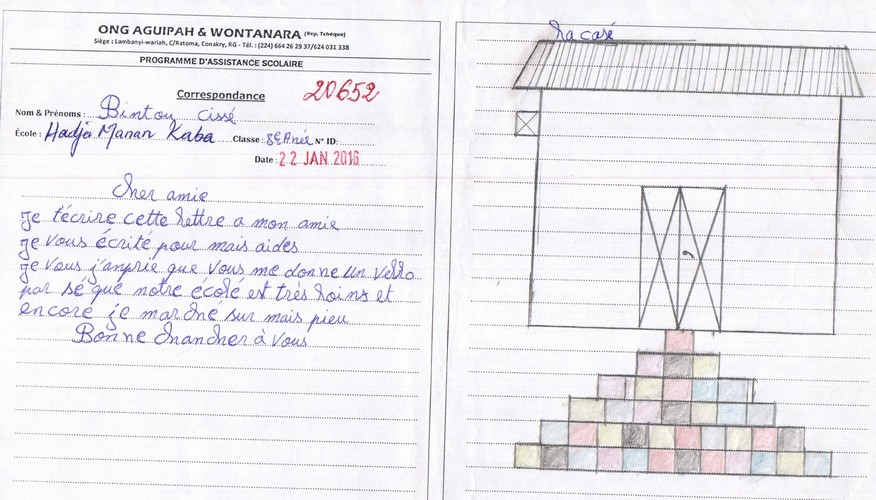 ONG AGUIPAH & WONTANARA (Rep. Tchèque)
Siège : Lambanyi-wariah, C/Ratoma, Conakry, RG - Tél. : (224) 664 26 29 37/624 031 338
PROGRAMME D'ASSISTANCE SCOLAIRE
Correspondance
20652
Nom & Prénoms : Bintou cissé
École : Hadja Manan Kaba Classe : 8è Anée N° ID:
Date : 22 JAN. 2016
Cher amie
je t'écrire cette lettre a mon amie
je vous écrité pour mais aides
je vous j'anprie que vous me donne un vello
par sé que notre écolé est très loins et
encoré je marché sur mais pieu
Bonne chancher à vous
La casé